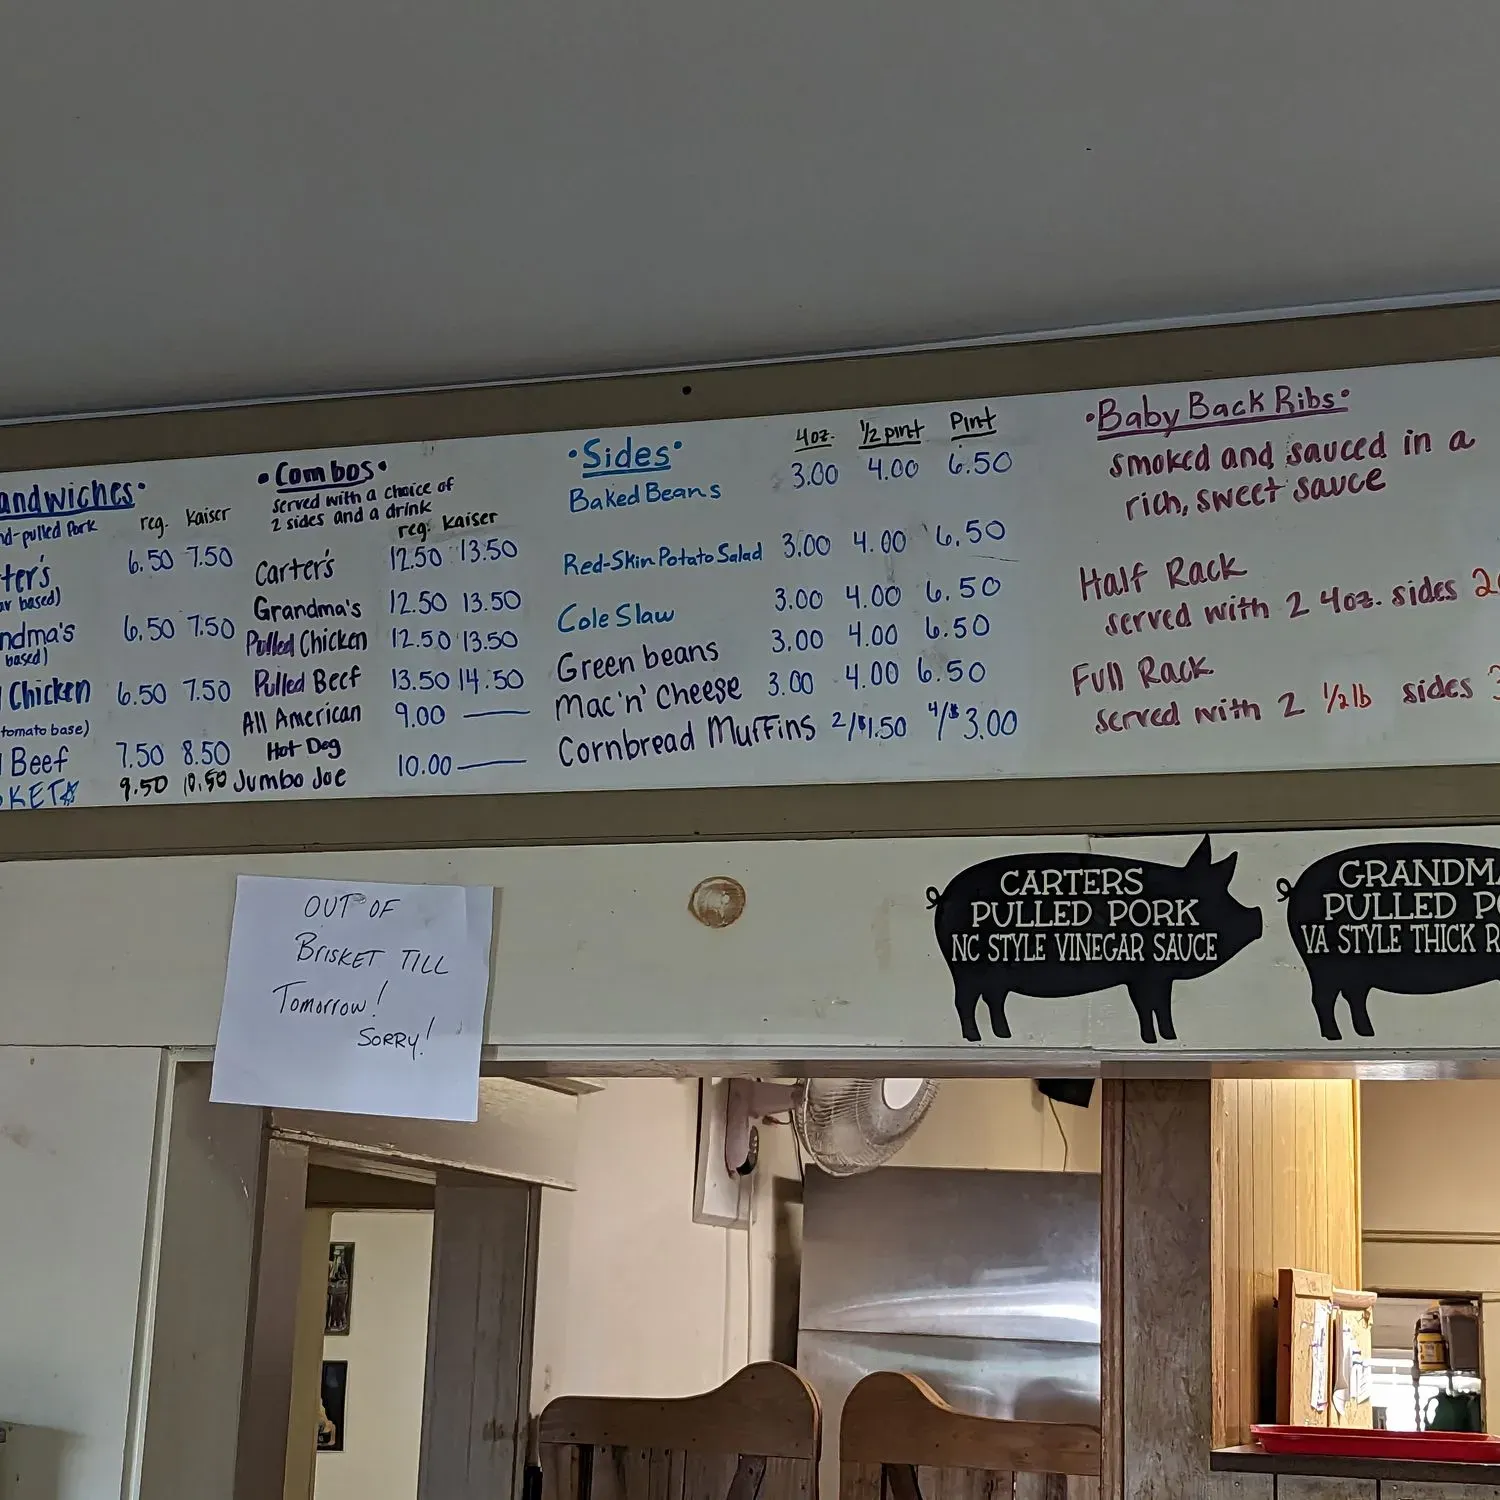 andwiches•
nd-pulled Pork
reg. Kaiser
ter's 6.50 7.50
ar based)
ndma's 6.50 7.50
based)
Chicken 6.50 7.50
tomato base)
Beef 7.50 8.50
KET☆ 9.50 10.50
•Combos•
served with a choice of
2 sides and a drink
reg. Kaiser
Carter's 12.50 13.50
Grandma's 12.50 13.50
Pulled Chicken 12.50 13.50
Pulled Beef 13.50 14.50
All American 9.00 —
Hot Dog
Jumbo Joe 10.00 —
•Sides• 4oz. 1/2 pint Pint
Baked Beans 3.00 4.00 6.50
Red-Skin Potato Salad 3.00 4.00 6.50
Cole Slaw 3.00 4.00 6.50
Green beans 3.00 4.00 6.50
Mac 'n' Cheese 3.00 4.00 6.50
Cornbread Muffins 2/$1.50 4/$3.00
•Baby Back Ribs•
smoked and sauced in a
rich, sweet sauce
Half Rack
served with 2 4oz. sides 2
Full Rack
served with 2 1/2 lb sides 3
OUT OF
BRISKET TILL
Tomorrow!
SORRY!
CARTERS
PULLED PORK
NC STYLE VINEGAR SAUCE
GRANDMA
PULLED PO
VA STYLE THICK R